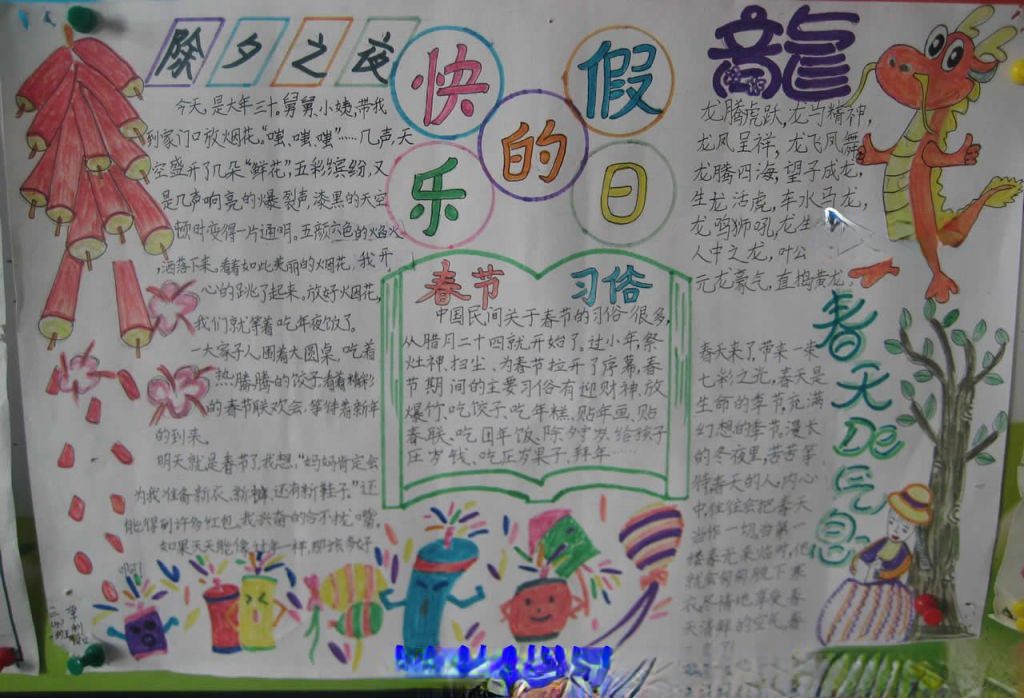 除夕之夜
今天,是大年三十。舅舅、小姨、带我
到家门口放烟花。"嗤、嗤、嗤"……几声,天
空盛开了几朵"鲜花",五彩缤纷,又
是几声响亮的爆裂声,漆黑的天空
顿时变得一片通明。五颜六色的焰火
,洒落下来。看着如此美丽的烟花,我开
心的跳了起来。放好烟花,
我们就等着吃年夜饭了。
一大家子人围着大圆桌,吃着
热腾腾的饺子看着精彩
的春节联欢会,等待着新年
的到来。
明天就是春节了,我想,"妈妈肯定会
为我准备新衣、新裤、还有新鞋子。"还
能得到许多红包,我兴奋的合不拢嘴。
如果天天能像过年一样,那该多好
啊!
快乐的假日
春节 习俗
中国民间关于春节的习俗很多,
从腊月二十四就开始了。过小年、祭
灶神、扫尘、为春节拉开了序幕,春
节期间的主要习俗有迎财神、放
爆竹、吃饺子、吃年糕、贴年画、贴
春联、吃团年饭、除夕守岁、给孩子
压岁钱、吃压岁果子、拜年……
龍
龙腾虎跃,龙马精神,
龙凤呈祥,龙飞凤舞
龙腾四海,望子成龙,
生龙活虎,车水马龙,
龙鸣狮吼,龙生
人中之龙,叶公
元龙豪气,直捣黄龙。
春天De气息
春天来了,带来一束
七彩之光,春天是
生命的季节,充满
幻想的季节。漫长
的冬夜里,苦苦等
待春天的人,内心
中往往会把春天
当作一切,当第一
缕春光来临时,他
就会匆匆脱下寒
衣尽情地享受春
天清鲜的空气,春